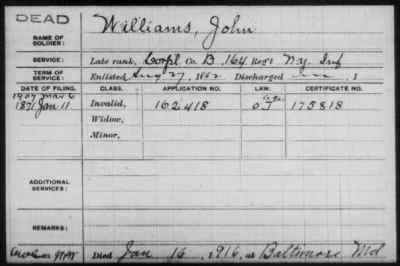 DEAD
NAME OF SOLDIER: Williams, John
SERVICE: Late rank, Corpl Co. B, 164 Reg't N.Y. Inf
TERM OF SERVICE: Enlisted Aug 27, 1862 Discharged , 1
DATE OF FILING. CLASS. APPLICATION NO. LAW. CERTIFICATE NO.
1907 Mar 6
1871 Jan 11 Invalid, 162418 175818
Widow,
Minor,
ADDITIONAL SERVICES:
REMARKS:
Died Jan 16, 1916, at Baltimore Md